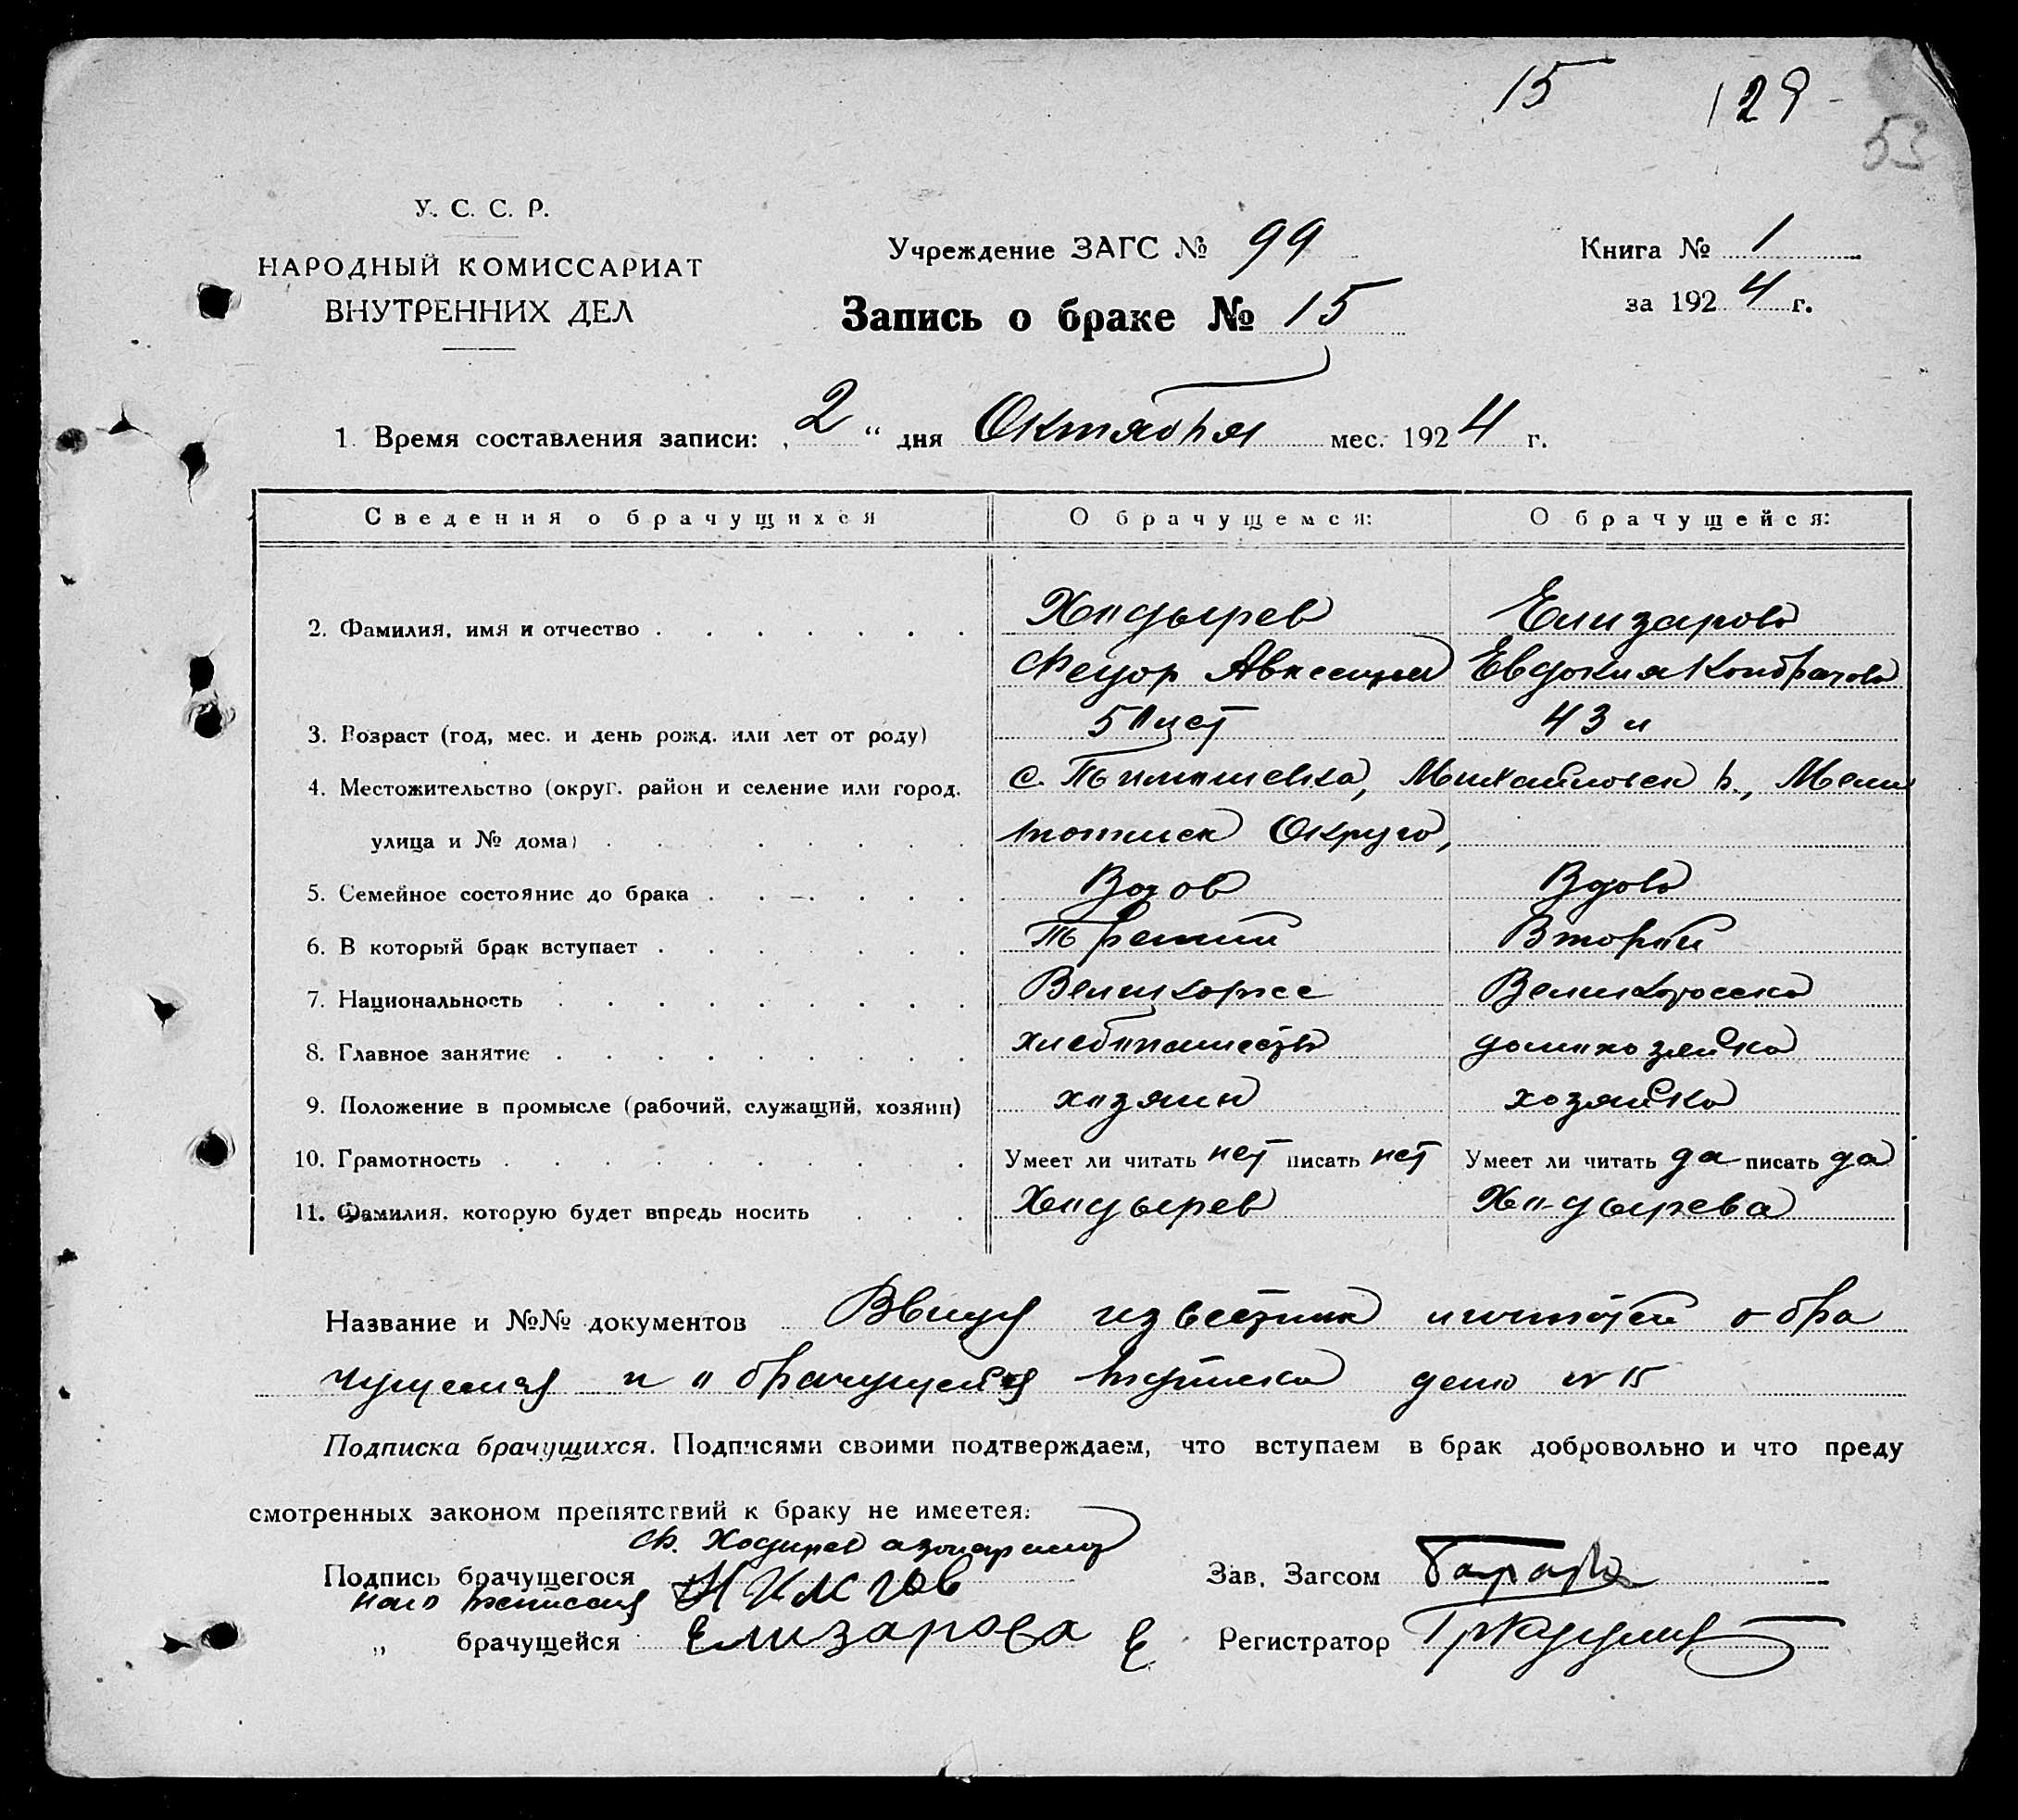 15 129
53
У. С. С. Р.
НАРОДНЫЙ КОМИССАРИАТ
ВНУТРЕННИХ ДЕЛ
Учреждение ЗАГС № 99
Книга № 1
за 1924 г.
Запись о браке № 15
1. Время составления записи: „2“ дня Октября мес. 1924 г.
Сведения о брачущихся О брачущемся: О брачущейся:
2. Фамилия, имя и отчество Ходырев Елизарова
Федор Авксентьев Евдокия Кондратова
3. Возраст (год, мес. и день рожд. или лет от роду) лет 43 л
4. Местожительство (округ. район и селение или город. с. Тимошевка, Михайловск р., Мели
улица и № дома) топольск Округа,
5. Семейное состояние до брака Вдов Вдова
6. В который брак вступает Третий Второй
7. Национальность Великорос Великоросска
8. Главное занятие хлебопашество домохозяйка
9. Положение в промысле (рабочий, служащий, хозяин) хозяин хозяйка
10. Грамотность Умеет ли читать нет писать нет Умеет ли читать да писать да
11. Фамилия, которую будет впредь носить Ходырев Ходырева
Название и №№ документов Ввиду известних личностей о бра
чущемся и о брачущейся дело № 15
Подписка брачущихся. Подписями своими подтверждаем, что вступаем в брак добровольно и что преду
смотренных законом препятствий к браку не имеется:
Ф. Ходырев
Подпись брачущегося
„ брачущейся Елизарова Е
Зав. Загсом
Регистратор